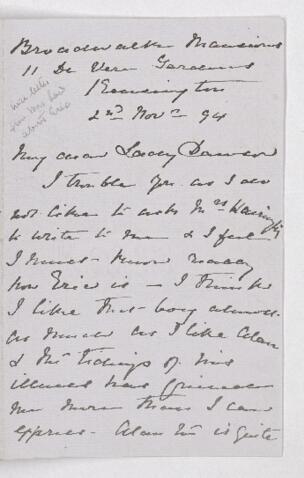 Broadwalk Mansions
11 De Vere Gardens
Kensington
2nd Novr 94
nice letter
from Mrs
about Eric
My dear Lady Dawson
I trouble you as I do
not like to ask Mrs
to write to me & I feel
I must know really
how Eric is – I think
I like that boy almost
as much as I like Alan
& the tidings of his
illness has grieved
me more than I can
express. Alan is quite